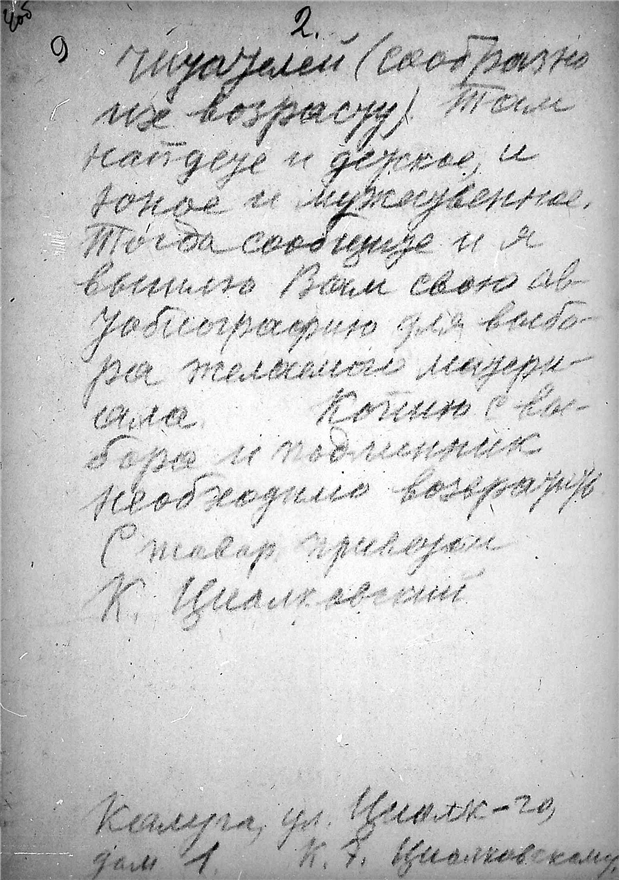 2.
9
читателей (сообразно
их возрасту). Там
найдете и детское, и
юное и мужественное.
Тогда сообщите и я
вышлю Вам свою ав
тобиографию для выбо-
ра желаемого матери-
ала. Копию с вы-
бора и подлинник
необходимо возвратить.
С товар. приветом
К. Циолковский
Калуга, ул. Циолк-го,
дом 1. К. Э. Циолковскому.